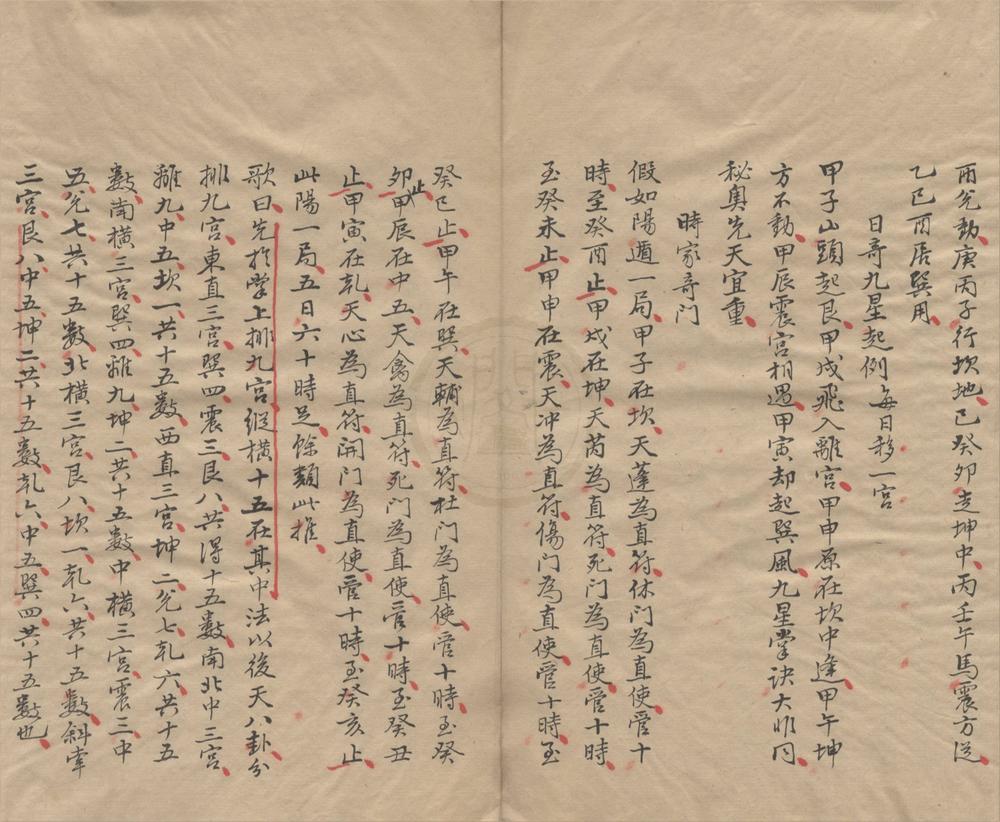 酉兌動庚丙子行坎地己癸卯走坤中丙壬午馬震方巡
乙巳酉居巽用
日奇九星起例每日移一宮
甲子山頭起艮甲戌飛入離宮甲申原在坎中逢甲午坤
方不動甲辰震宮相遇甲寅却起巽風九星掌訣大非同
秘奧先天宜重
時家奇门
假如陽遁一局甲子在坎天蓬為直符休门為直使管十
時至癸酉止甲戌在坤天芮為直符死门為直使管十時
至癸未止甲申在震天冲為直符傷门為直使管十時至
癸巳止甲午在巽天輔為直符杜门為直使管十時至癸
卯止甲辰在中五天禽為直符死门為直使管十時至癸丑
止甲寅在乾天心為直符開门為直使管十時至癸亥止
此陽一局五日六十時足餘類此推
歌曰先於掌上排九宮縱橫十五在其中法以後天八卦分
排九宮東直三宮巽四震三艮八共得十五数南北中三宮
離九中五坎一共十五数西直三宮坤二兌七乾六共十五
数南横三宮巽四離九坤二共十五数中横三宮震三中
五兌七共十五数北横三宮艮八坎一乾六共十五数斜牽
三宮艮八中五坤二共十五数乾六中五巽四共十五数也